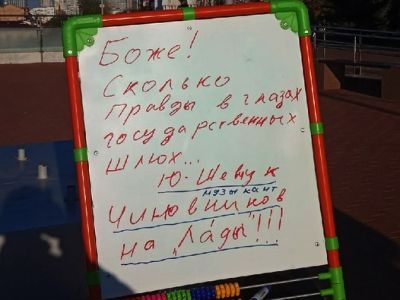 Боже!
Сколько
правды в глазах
государственных
шлюх...
Ю. Шевчук
музыкант
Чиновников
на „Ла́ды"!!!